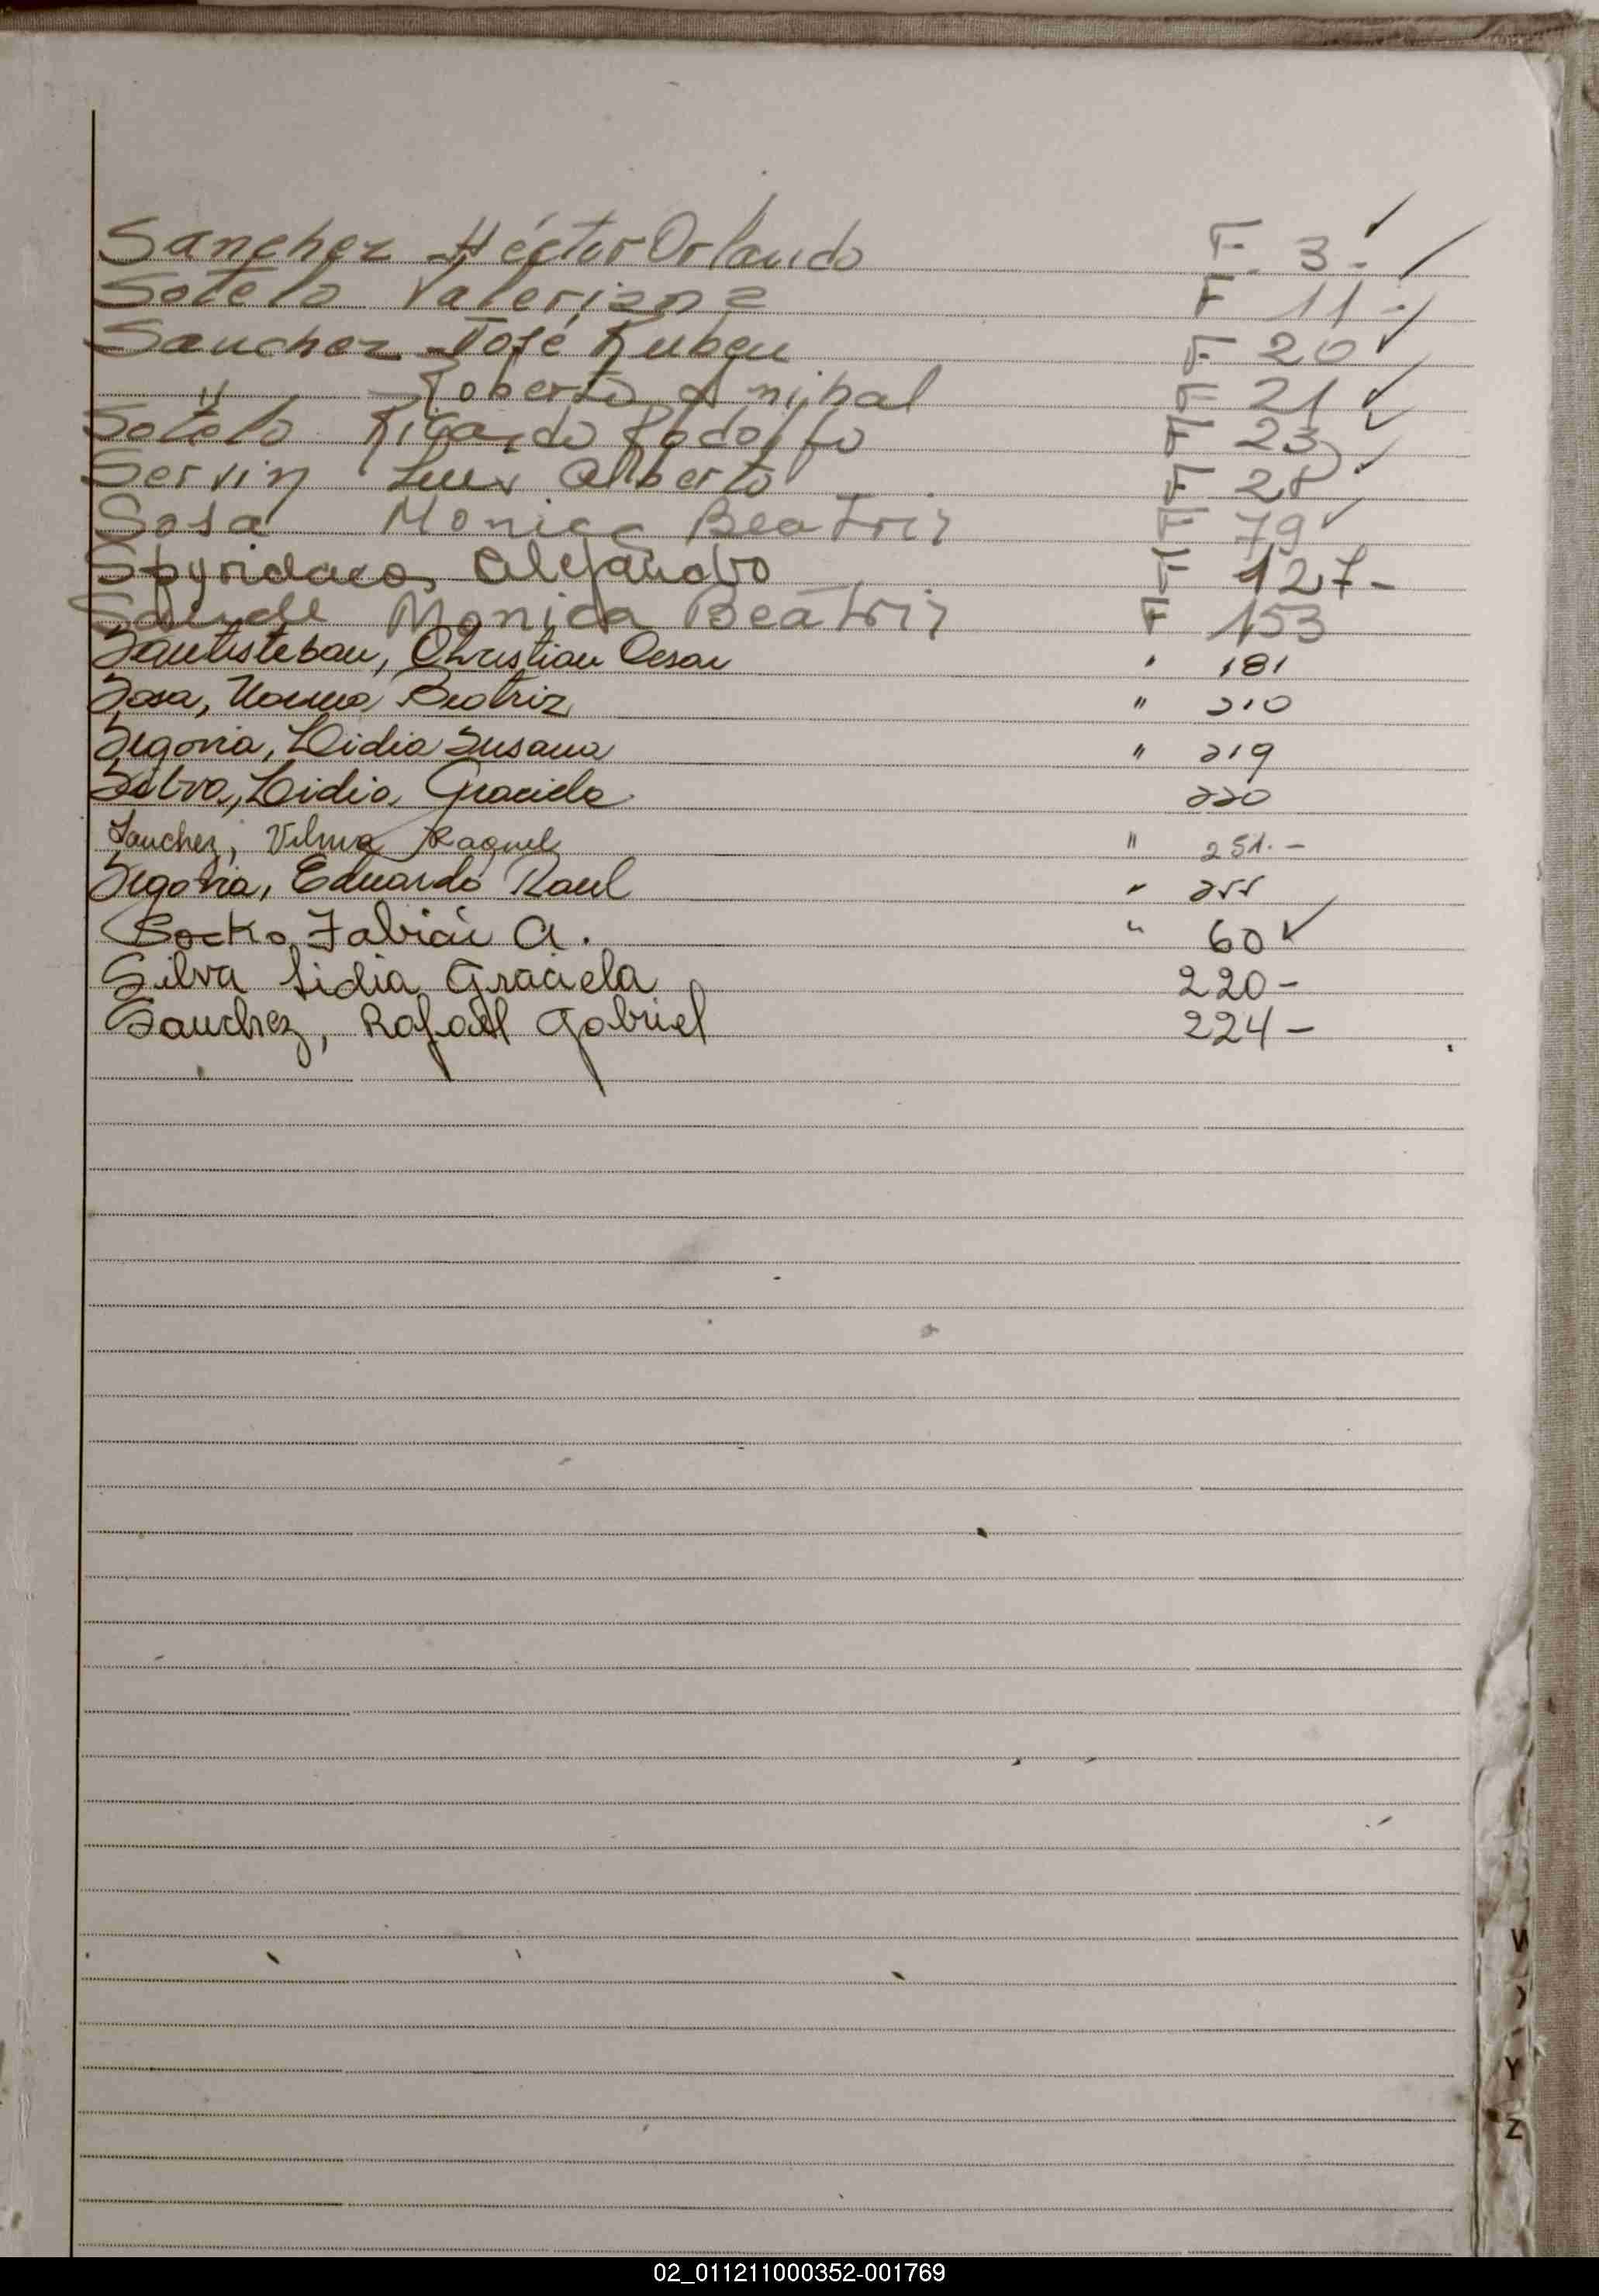 Sanchez Héctor Orlando F. 3.- ✓
Sotelo Valeriana F 11 -
Sanchez José Ruben F 20 ✓
" Roberto Anibal F 21 ✓
Sotelo Ricardo Rodolfo F 23 ✓
Servin Luis Alberto F 28 ✓
Sosa Monica Beatriz F 79 ✓
Spyridaco, Alejandro F 127-
Monica Beatriz F 153
Santisteban, Christian Cesar " 181
Sosa, Norma Beatriz " 210
Segovia, Lidia Susana " 219
Silva, Lidia Graciela 220
Sanchez, Vilma Raquel " 251.-
Segovia, Eduardo Raul " 255
Fabián A. " 60 ✓
Silva Lidia Graciela 220-
Sanchez, Rafael Gabriel 224-
W
Y
Z
02_011211000352-001769